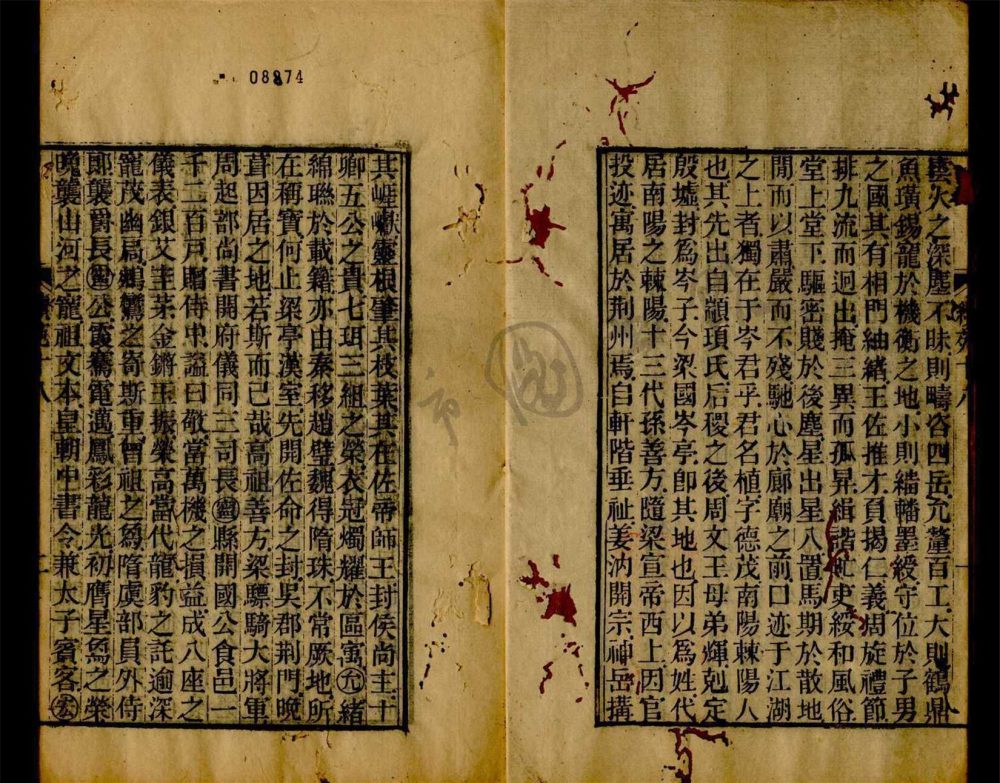 火之深塵不昧則疇咨四岳允釐百工大則鶴鼎
魚璜錫寵於機衡之地小則繙幡墨綬守位於子男
之國其有相門紬緒王佐推才負揭仁義周旋禮節
排九流而迥出掩三異而孤昇緝諧甿吏綏和風俗
堂上堂下驅密賤於後塵星出星入置馬期於散地
閒而以肅嚴而不殘馳心於廊廟之前口迹于江湖
之上者獨在于岑君乎君名植字德茂南陽棘陽人
也其先出自顓頊氏后稷之後周文王母弟輝剋定
殷墟封爲岑子今梁國岑亭即其地也因以爲姓代
居南陽之棘陽十三代孫善方隨梁宣帝西上因官
投迹寓居於荆州焉自軒階垂祉姜汭開宗神岳搆
08974
其嵯巘靈根肇其枝葉其在佐帝師王封侯尚主十
卿五公之貴七珥三組之榮衣冠燭耀於區寓允緒
綿聯於載籍亦由秦移趙璧魏得隋珠不常厥地所
在稱寶何止梁亭漢室先開佐命之封吳郡荆門晚
葺因居之地若斯而已哉高祖善方梁驃騎大將軍
周起部尚書開府儀同三司長寧縣開國公食邑一
千二百戸贈侍中謚曰敬當萬機之損益成八座之
儀表銀艾圭茅金鏘玉振榮高當代龍豹之託逾深
寵茂幽扃鶴鸞之寄斯重曾祖之爲隋虞部員外侍
郎襲爵長寧公霞騫電邁鳳彩龍光初膺星舄之榮
晚襲山河之寵祖文本皇朝中書令兼太子賓客玄